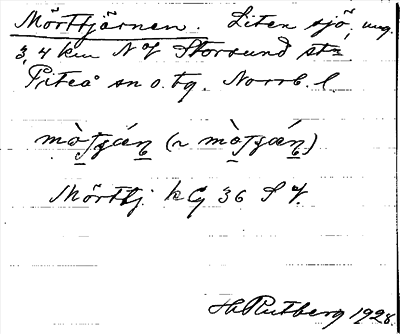 Mörttjärnen. Liten sjö, ung.
3,4 km N V Storsund stn
Piteå sn o. tg. Norrb. l
Mörttj. kG 36 S V.
H. Rutberg 1928.